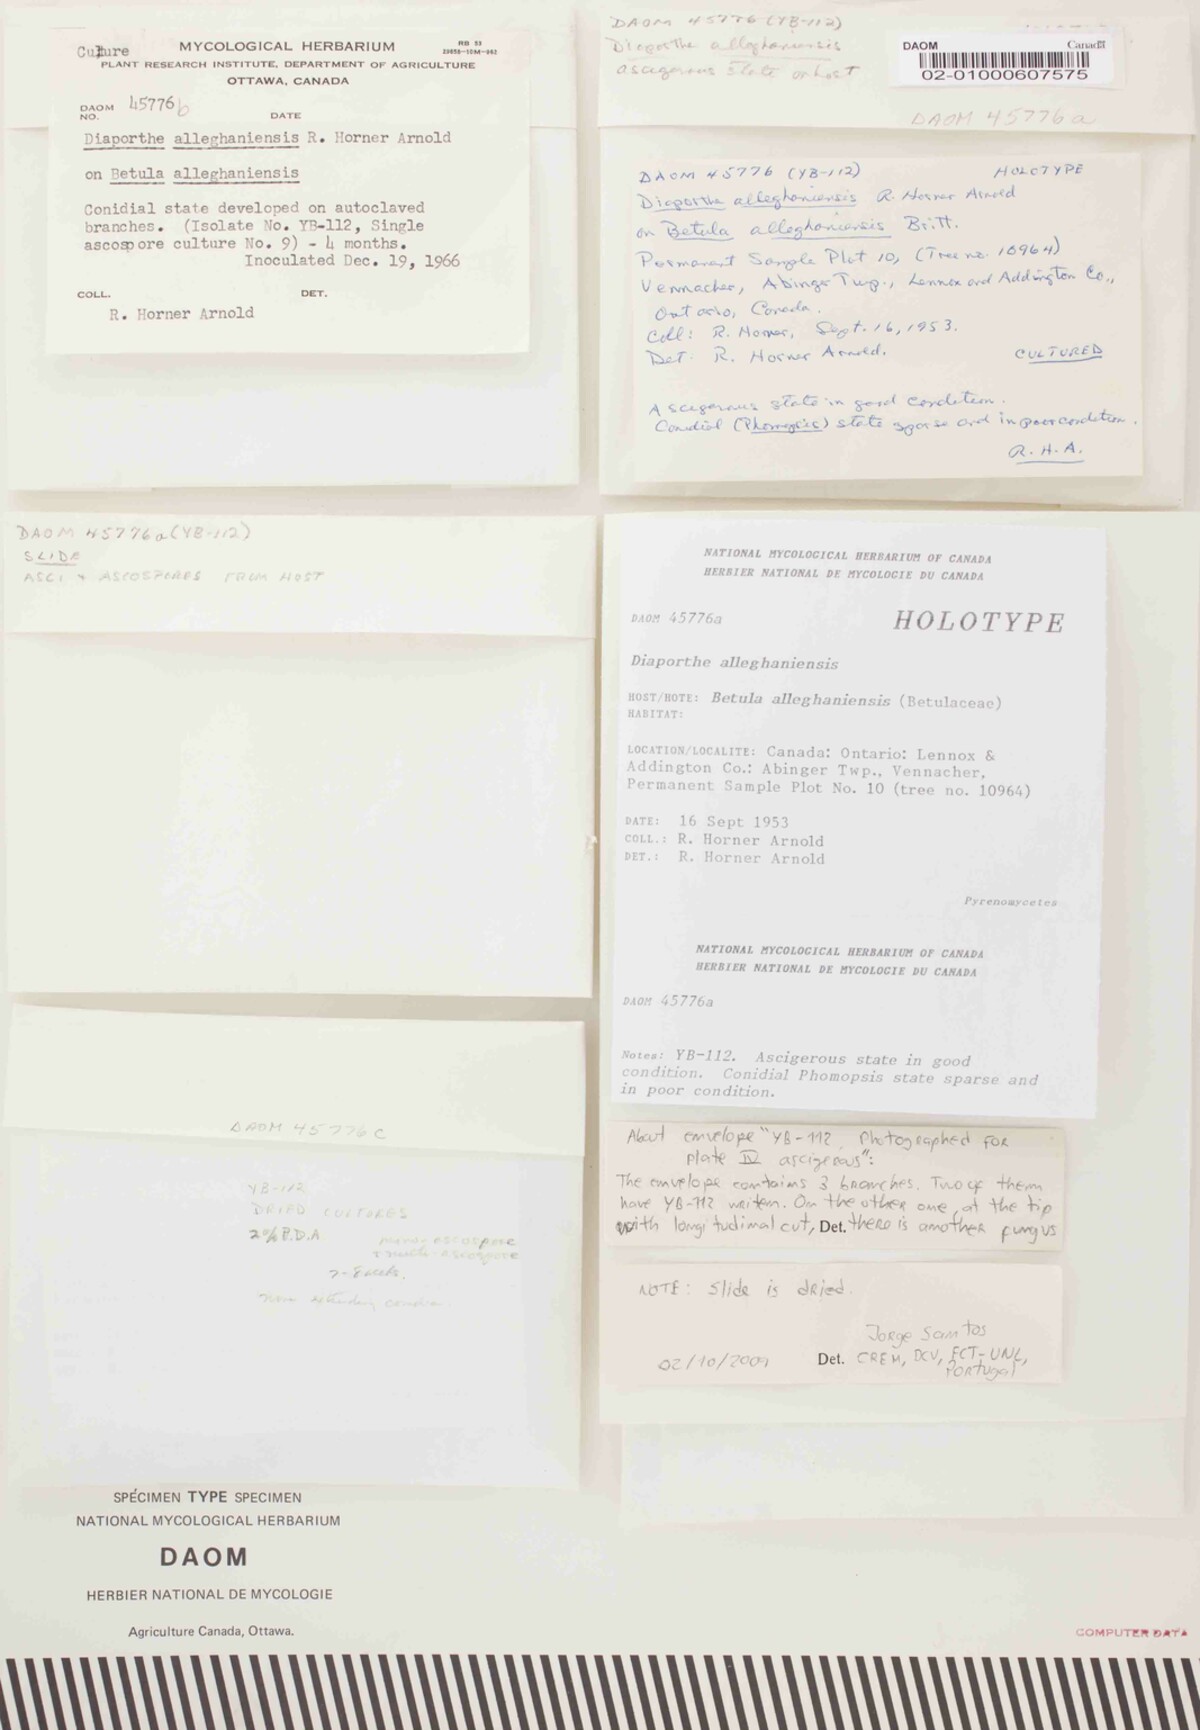 Culture
MYCOLOGICAL HERBARIUM
RB 53
PLANT RESEARCH INSTITUTE, DEPARTMENT OF AGRICULTURE
OTTAWA, CANADA
DAOM NO. 45776b
DATE
Diaporthe alleghaniensis R. Horner Arnold
on Betula alleghaniensis
Conidial state developed on autoclaved
branches. (Isolate No. YB-112, Single
ascospore culture No. 9) - 4 months.
Inoculated Dec. 19, 1966
COLL.
DET.
R. Horner Arnold
DAOM 45776 (YB-112)
Diaporthe alleghaniensis
ascigerous state on host
DAOM
Canada
02-01000607575
DAOM 45776a
DAOM 45776 (YB-112)
HOLOTYPE
Diaporthe alleghaniensis R. Horner Arnold
on Betula alleghaniensis Britt.
Permanent Sample Plot 10, (Tree no. 10964)
Vennachar, Abinger Twp., Lennox and Addington Co.,
Ontario, Canada.
Coll: R. Horner, Sept. 16, 1953.
Det: R. Horner Arnold.
CULTURED
Ascigerous state in good condition.
Conidial (Phomopsis) state sparse and in poor condition.
R.H.A.
DAOM 45776a (YB-112)
SLIDE
ASCI + ASCOSPORES FROM HOST
NATIONAL MYCOLOGICAL HERBARIUM OF CANADA
HERBIER NATIONAL DE MYCOLOGIE DU CANADA
DAOM 45776a
HOLOTYPE
Diaporthe alleghaniensis
HOST/HOTE: Betula alleghaniensis (Betulaceae)
HABITAT:
LOCATION/LOCALITE: Canada: Ontario: Lennox &
Addington Co.: Abinger Twp., Vennacher,
Permanent Sample Plot No. 10 (tree no. 10964)
DATE: 16 Sept 1953
COLL.: R. Horner Arnold
DET.: R. Horner Arnold
Pyrenomycetes
NATIONAL MYCOLOGICAL HERBARIUM OF CANADA
HERBIER NATIONAL DE MYCOLOGIE DU CANADA
DAOM 45776a
Notes: YB-112. Ascigerous state in good
condition. Conidial Phomopsis state sparse and
in poor condition.
DAOM 45776c
YB-112
DRIED CULTURES
2% P.D.A
mono-ascospore
+ multi-ascospore
About envelope "YB-112 Photographed for
plate IV ascigerous":
The envelope contains 3 branches. Two of them
have YB-112 written. On the other one, at the tip
with longitudimal cut, Det. there is another fungus
NOTE: Slide is dried.
Jorge Santos
02/10/2009
Det. CREM, DCV, FCT-UNL,
Portugal
SPÉCIMEN TYPE SPECIMEN
NATIONAL MYCOLOGICAL HERBARIUM
DAOM
HERBIER NATIONAL DE MYCOLOGIE
Agriculture Canada, Ottawa.
COMPUTER DATA